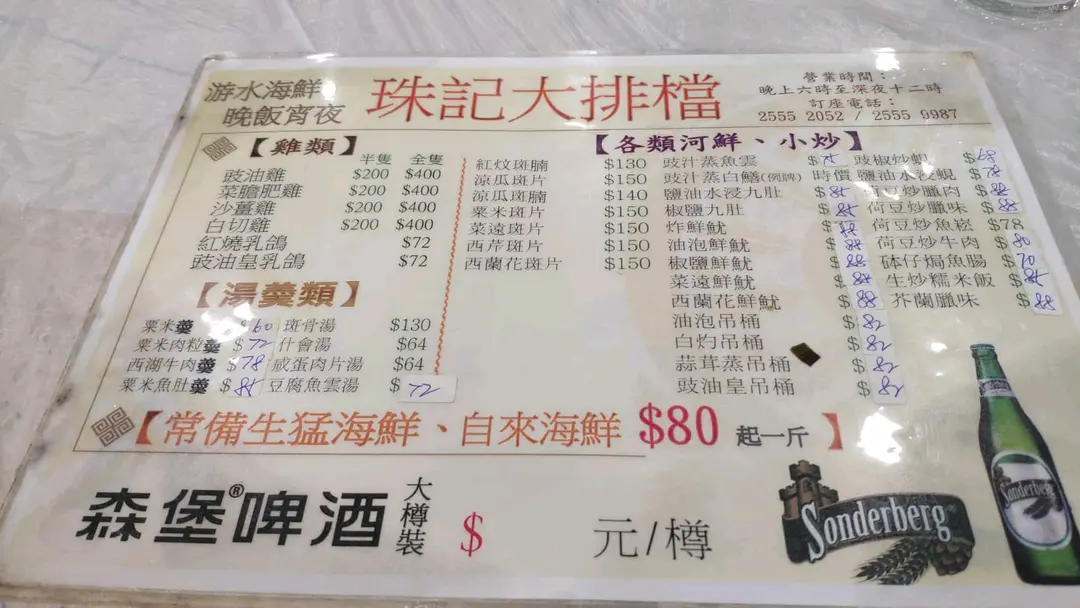 游水海鮮
晚飯宵夜
珠記大排檔
營業時間：
晚上六時至深夜十二時
訂座電話：
2555 2052 / 2555 9987
【雞類】
半隻 全隻
豉油雞 $200 $400
菜膽肥雞 $200 $400
沙薑雞 $200 $400
白切雞 $200 $400
紅燒乳鴿 $72
豉油皇乳鴿 $72
【湯羹類】
粟米羹 $60 斑骨湯 $130
粟米肉粒羹 $72 什會湯 $64
西湖牛肉羹 $78 咸蛋肉片湯 $64
粟米魚肚羹 $85 豆腐魚雲湯 $72
【各類河鮮、小炒】
紅炆斑腩 $130
涼瓜斑片 $150
涼瓜斑腩 $140
粟米斑片 $150
菜遠斑片 $150
西芹斑片 $150
西蘭花斑片 $150
豉汁蒸魚雲 $75
豉汁蒸白鱔(例牌) 時價
鹽油水浸九肚 $85
椒鹽九肚 $85
炸鮮魷 $88
油泡鮮魷 $88
椒鹽鮮魷 $88
菜遠鮮魷 $88
西蘭花鮮魷 $88
油泡吊桶 $82
白灼吊桶 $82
蒜茸蒸吊桶 $82
豉油皇吊桶 $82
豉椒炒蜆 $68
鹽油水浸蜆 $78
荷豆炒臘肉 $88
荷豆炒臘味 $88
荷豆炒魚崧 $78
荷豆炒牛肉 $80
砵仔焗魚腸 $70
生炒糯米飯 $85
芥蘭臘味 $88
【常備生猛海鮮、自來海鮮 $80 起一斤】
森堡®啤酒 大樽裝 $ 元/樽
Sonderberg
Sonderberg